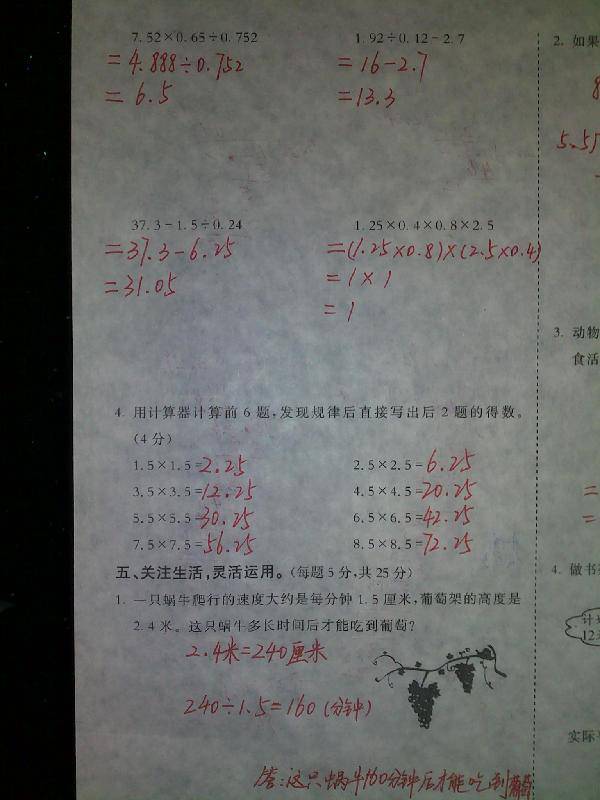 7.52×0.65÷0.752
=4.888÷0.752
=6.5
1.92÷0.12-2.7
=16-2.7
=13.3
37.3-1.5÷0.24
=37.3-6.25
=31.05
1.25×0.4×0.8×2.5
=(1.25×0.8)×(2.5×0.4)
=1×1
=1
4. 用计算器计算前6题,发现规律后直接写出后2题的得数。
(4分)
1.5×1.5=2.25
2.5×2.5=6.25
3.5×3.5=12.25
4.5×4.5=20.25
5.5×5.5=30.25
6.5×6.5=42.25
7.5×7.5=56.25
8.5×8.5=72.25
五、关注生活,灵活运用。(每题5分,共25分)
1. 一只蜗牛爬行的速度大约是每分钟1.5厘米,葡萄架的高度是
2.4米。这只蜗牛多长时间后才能吃到葡萄?
2.4米=240厘米
240÷1.5=160(分钟)
答:这只蜗牛160分钟后才能吃到葡萄
2. 如果
8
5.5
3. 动物
食活
=
=
4. 做书
计
12
实际